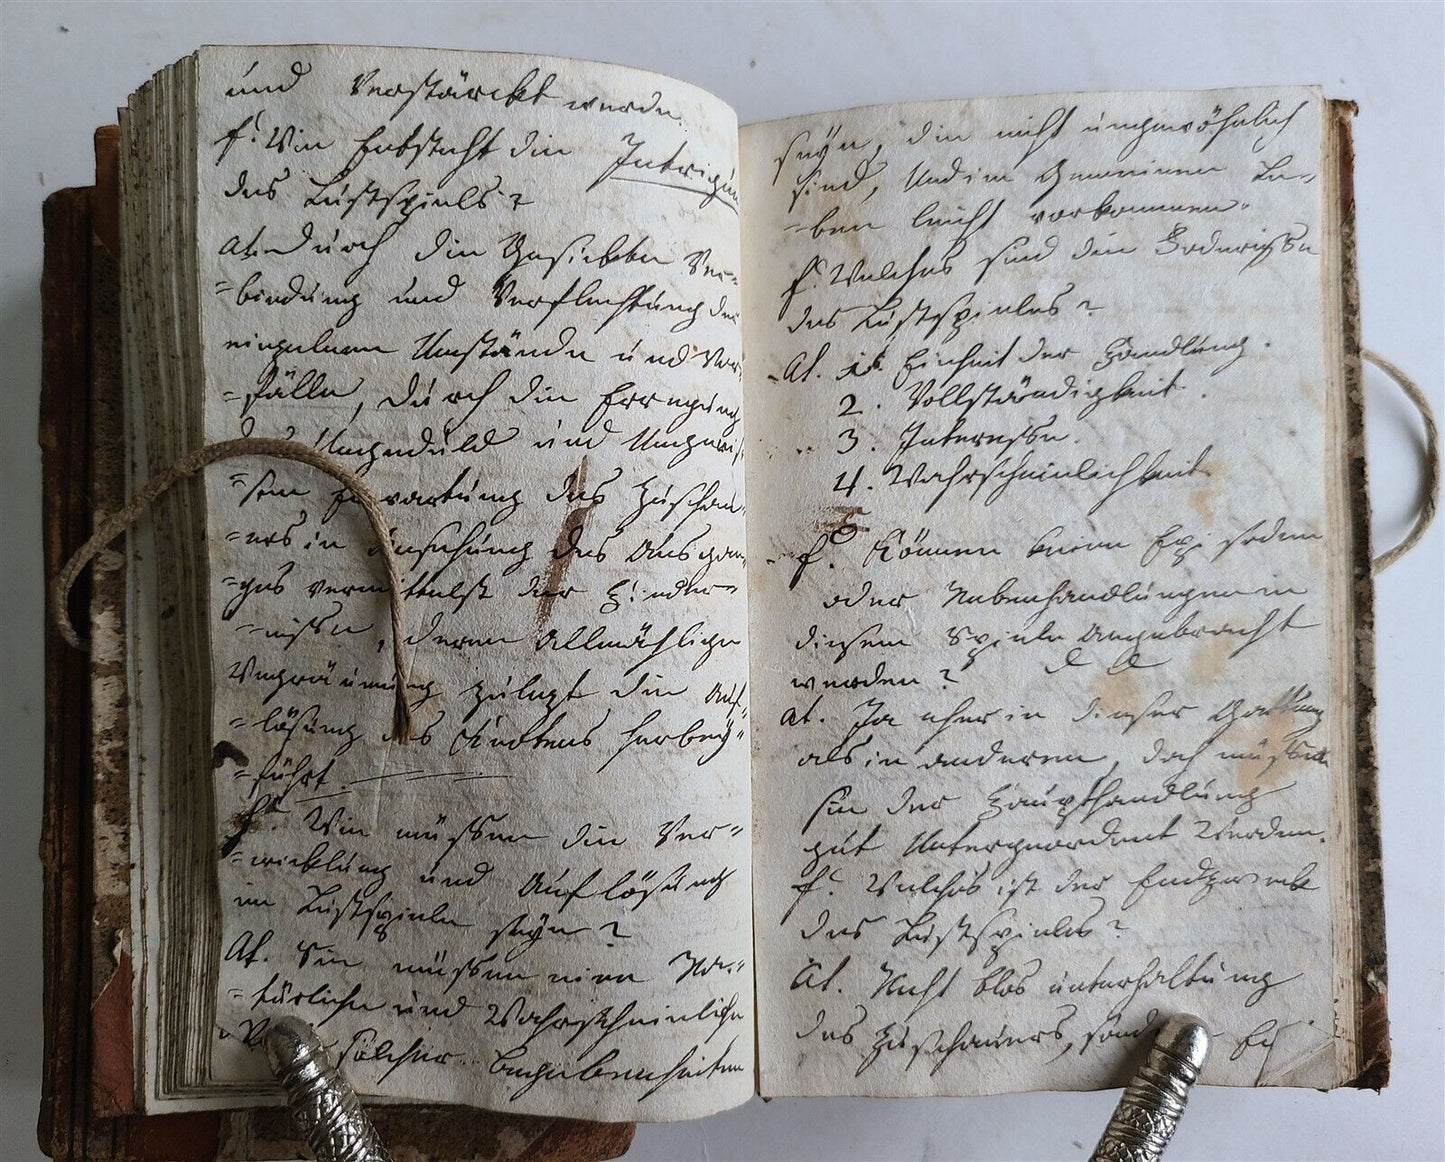 und Verstärckt werde.
f: Wie Entsteht die Intrigue
des Lustspiels?
At. durch die Geschickte Ver=
=bindung und Verflechtung der
einzelnen Umstände und Vor=
=fälle, durch die Erregung
Ungeduld und Ungewis=
=sen Erwartung des Zuschau=
=ers in Ansehung des Ausgan=
=ges vermittelst der Hinder=
=nisse, deren Allmähliche
Wegräumung zulezt die Auf=
=lösung des Knotens herbey=
=führt.
f: Wie müssen die Ver=
=wicklung und Auflösung
im Lustspiele seyn?
At. Sie müssen eine Na=
=türliche und Wahrscheinliche
solcher Begebenheiten
seyn, die nicht ungewöhnlich
sind, Und im Gemeinen Le=
=ben leicht vorkommen.
f: Welches sind die Erdernisse
des Lustspieles?
At. 1. Einheit der Handlung.
2. Vollständigkeit.
3. Interesse.
4. Wahrscheinlichkeit
f: Können keine Episoden
oder Nebenhandlungen in
diesem Spiele Angebracht
werden?
At. Ja eher in dieser Gattung
als in anderen, doch müssen
sie der Haupthandlung
gut Untergeordnet Werden.
f: Welches ist der Endzweck
des Lustspieles?
At. Nicht blos unterhaltung
des Zuschauers, sond